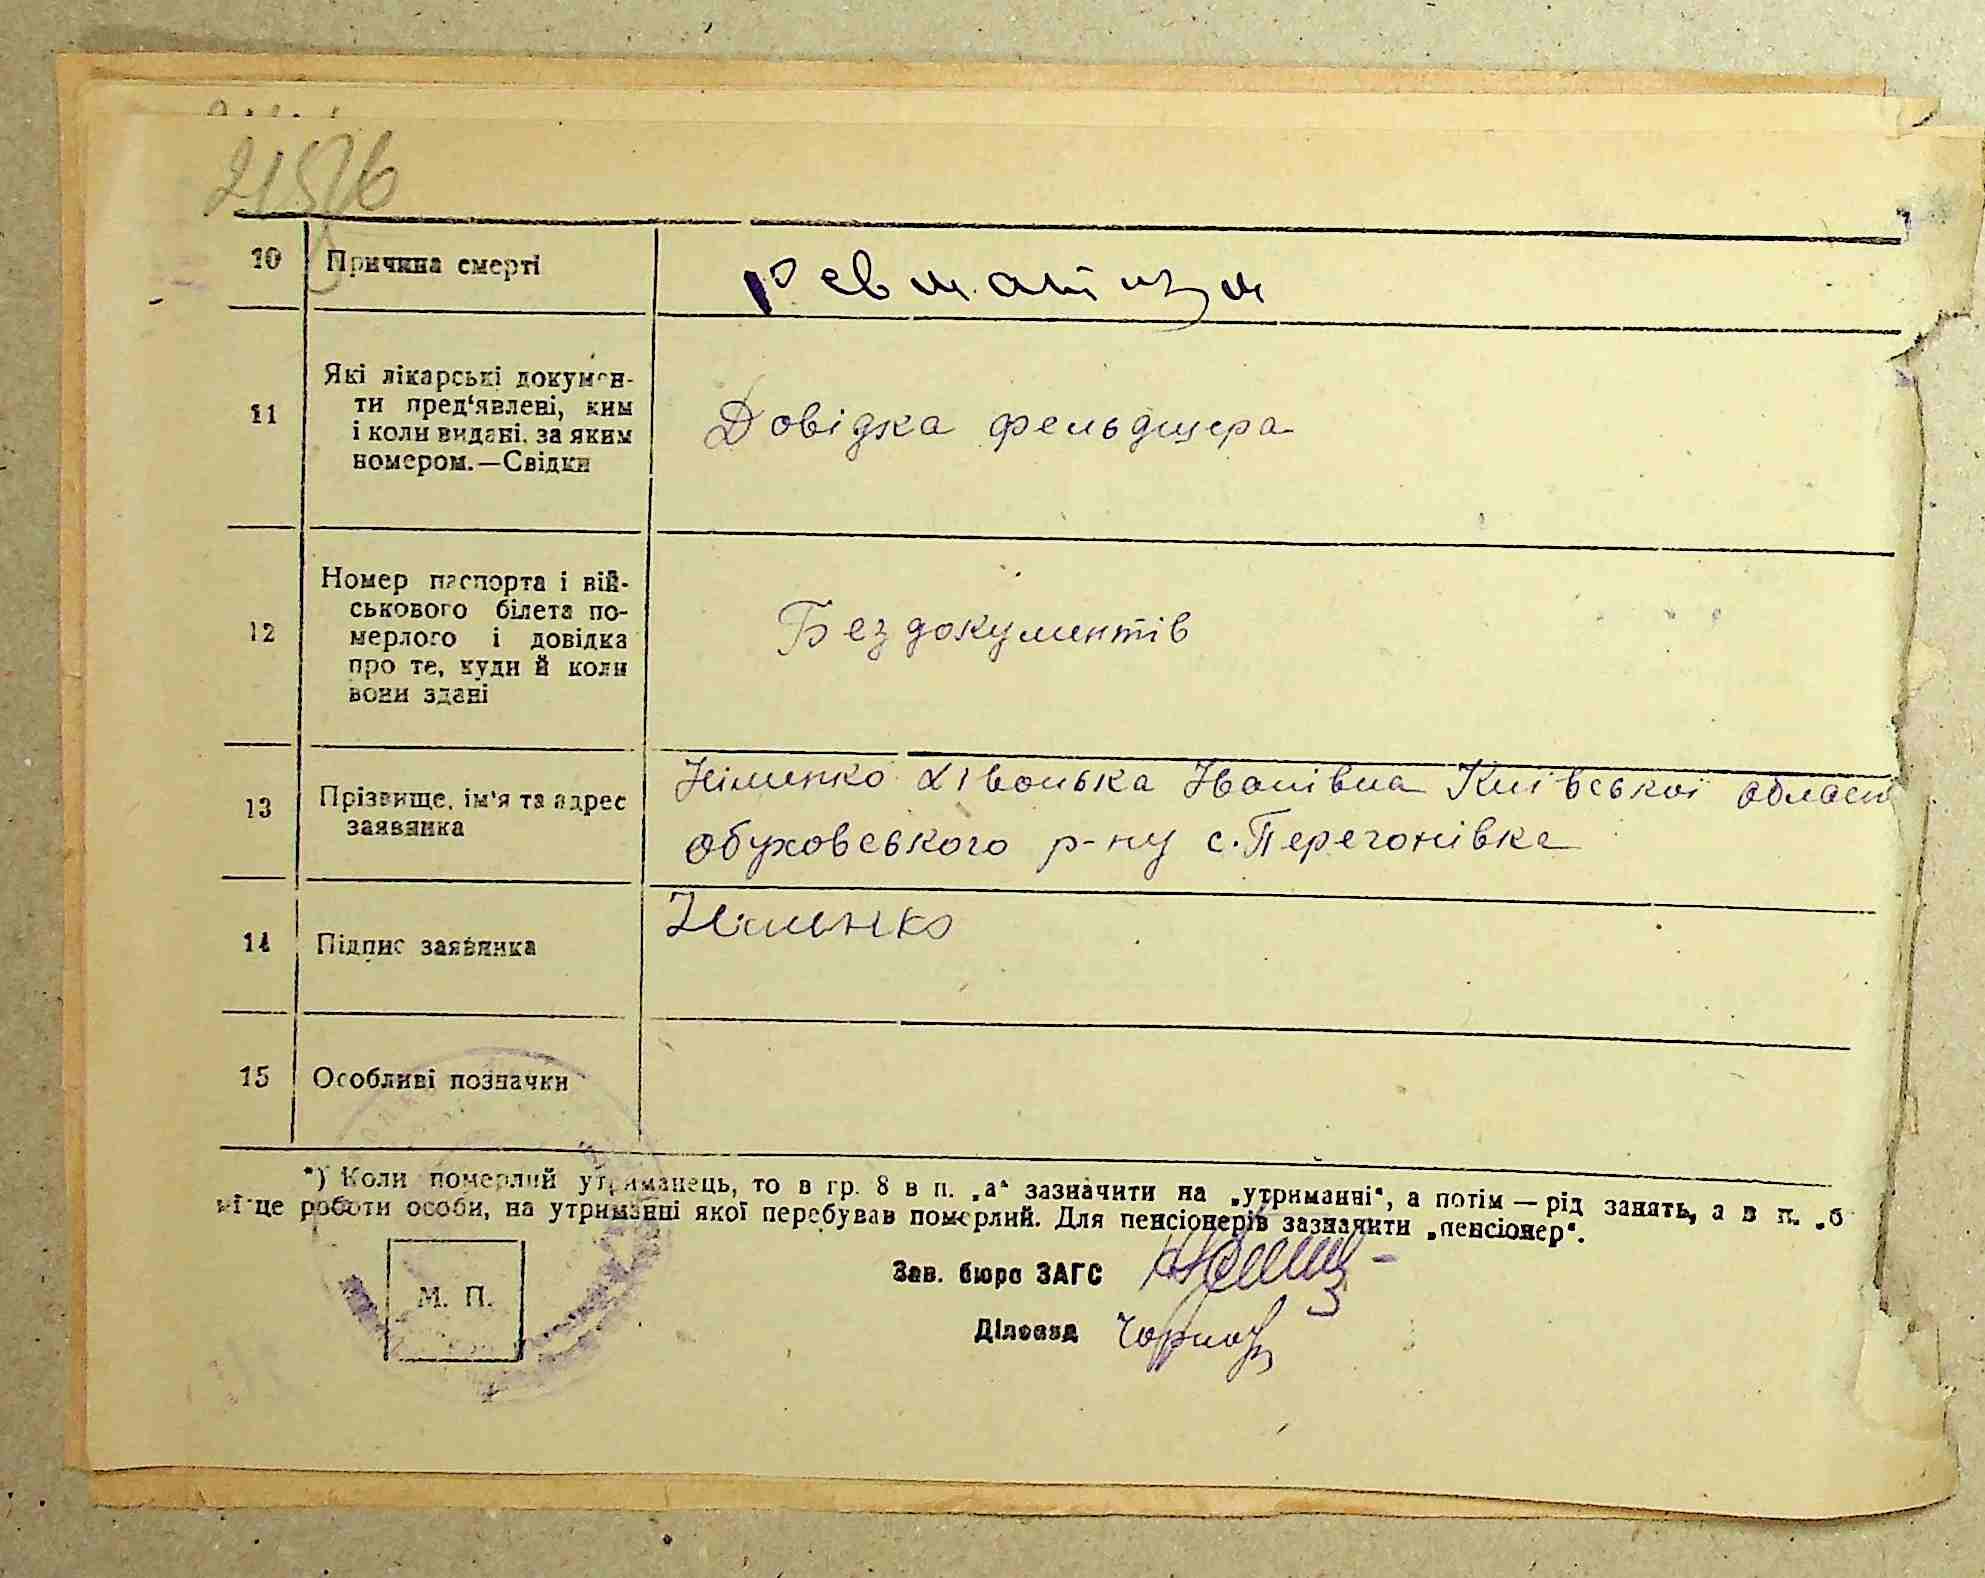 10 Причина смерті ревматизм
11 Які лікарські докумен-
ти пред'явлені, ким
і коли видані, за яким
номером.—Свідки
Довідка фельдшера
12 Номер паспорта і вій-
ськового білета по-
мерлого і довідка
про те, куди й коли
вони здані
Без документів
13 Прізвище, ім'я та адрес
заявника
Німенко Івонька Іванівна Київської област
обуховського р-ну с. Перегонівка
14 Підпис заявника Німенко
15 Особливі позначки
*) Коли померлий утриманець, то в гр. 8 в п. „а“ зазначити на „утриманні“, а потім — рід занять, а в п. „б
місце роботи особи, на утриманні якої перебував померлий. Для пенсіонерів зазначити „пенсіонер“.
М. П.
Зав. бюро ЗАГС
Діловод